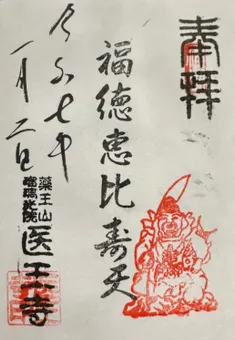 奉拝
福徳恵比寿天
令和七年
一月二日
薬王山
医王寺